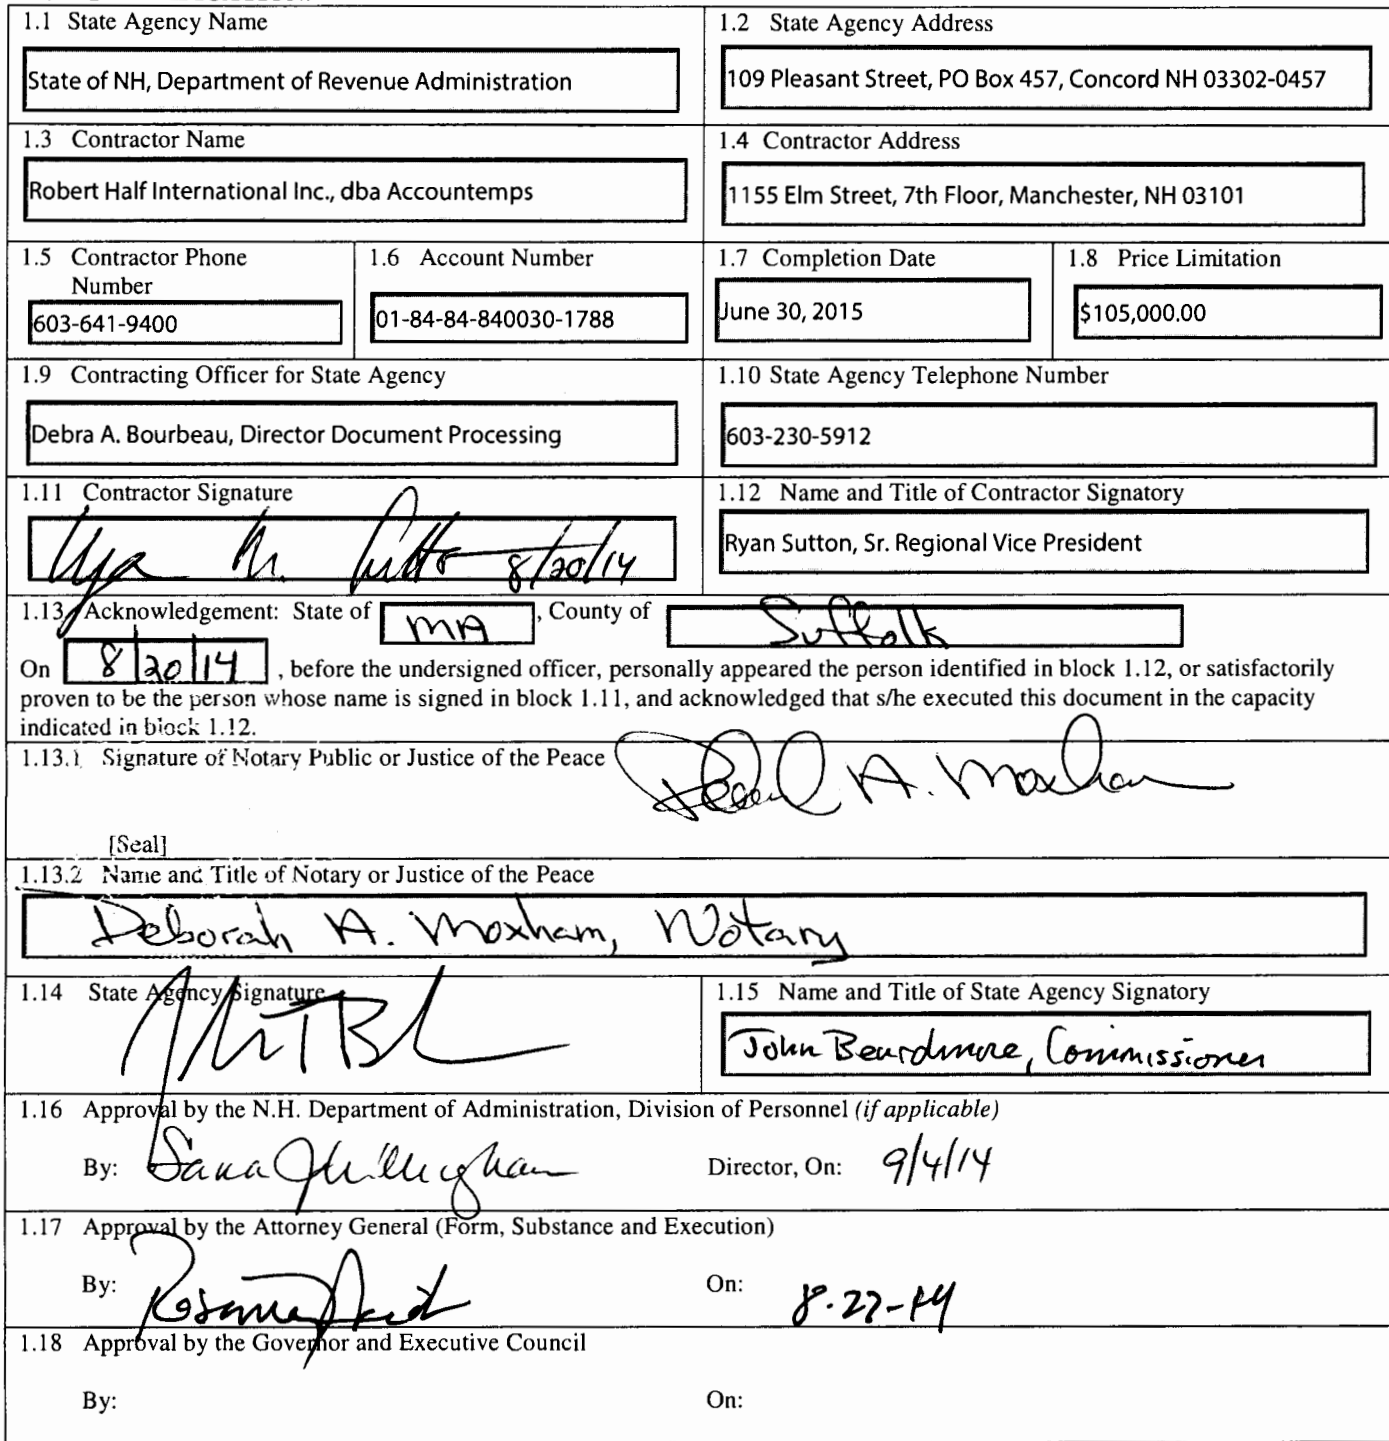 1.1 State Agency Name
State of NH, Department of Revenue Administration
1.2 State Agency Address
109 Pleasant Street, PO Box 457, Concord NH 03302-0457
1.3 Contractor Name
Robert Half International Inc., dba Accountemps
1.4 Contractor Address
1155 Elm Street, 7th Floor, Manchester, NH 03101
1.5 Contractor Phone
Number
603-641-9400
1.6 Account Number
01-84-84-840030-1788
1.7 Completion Date
June 30, 2015
1.8 Price Limitation
$105,000.00
1.9 Contracting Officer for State Agency
Debra A. Bourbeau, Director Document Processing
1.10 State Agency Telephone Number
603-230-5912
1.11 Contractor Signature
8/20/14
1.12 Name and Title of Contractor Signatory
Ryan Sutton, Sr. Regional Vice President
1.13 Acknowledgement: State of MA, County of Suffolk
On 8/20/14, before the undersigned officer, personally appeared the person identified in block 1.12, or satisfactorily
proven to be the person whose name is signed in block 1.11, and acknowledged that s/he executed this document in the capacity
indicated in block 1.12.
1.13.1 Signature of Notary Public or Justice of the Peace
A. Moxham
[Seal]
1.13.2 Name and Title of Notary or Justice of the Peace
Deborah A. Moxham, Notary
1.14 State Agency Signature
1.15 Name and Title of State Agency Signatory
John Beardmore, Commissioner
1.16 Approval by the N.H. Department of Administration, Division of Personnel (if applicable)
By: Director, On: 9/4/14
1.17 Approval by the Attorney General (Form, Substance and Execution)
By: On: 8-27-14
1.18 Approval by the Governor and Executive Council
By: On: